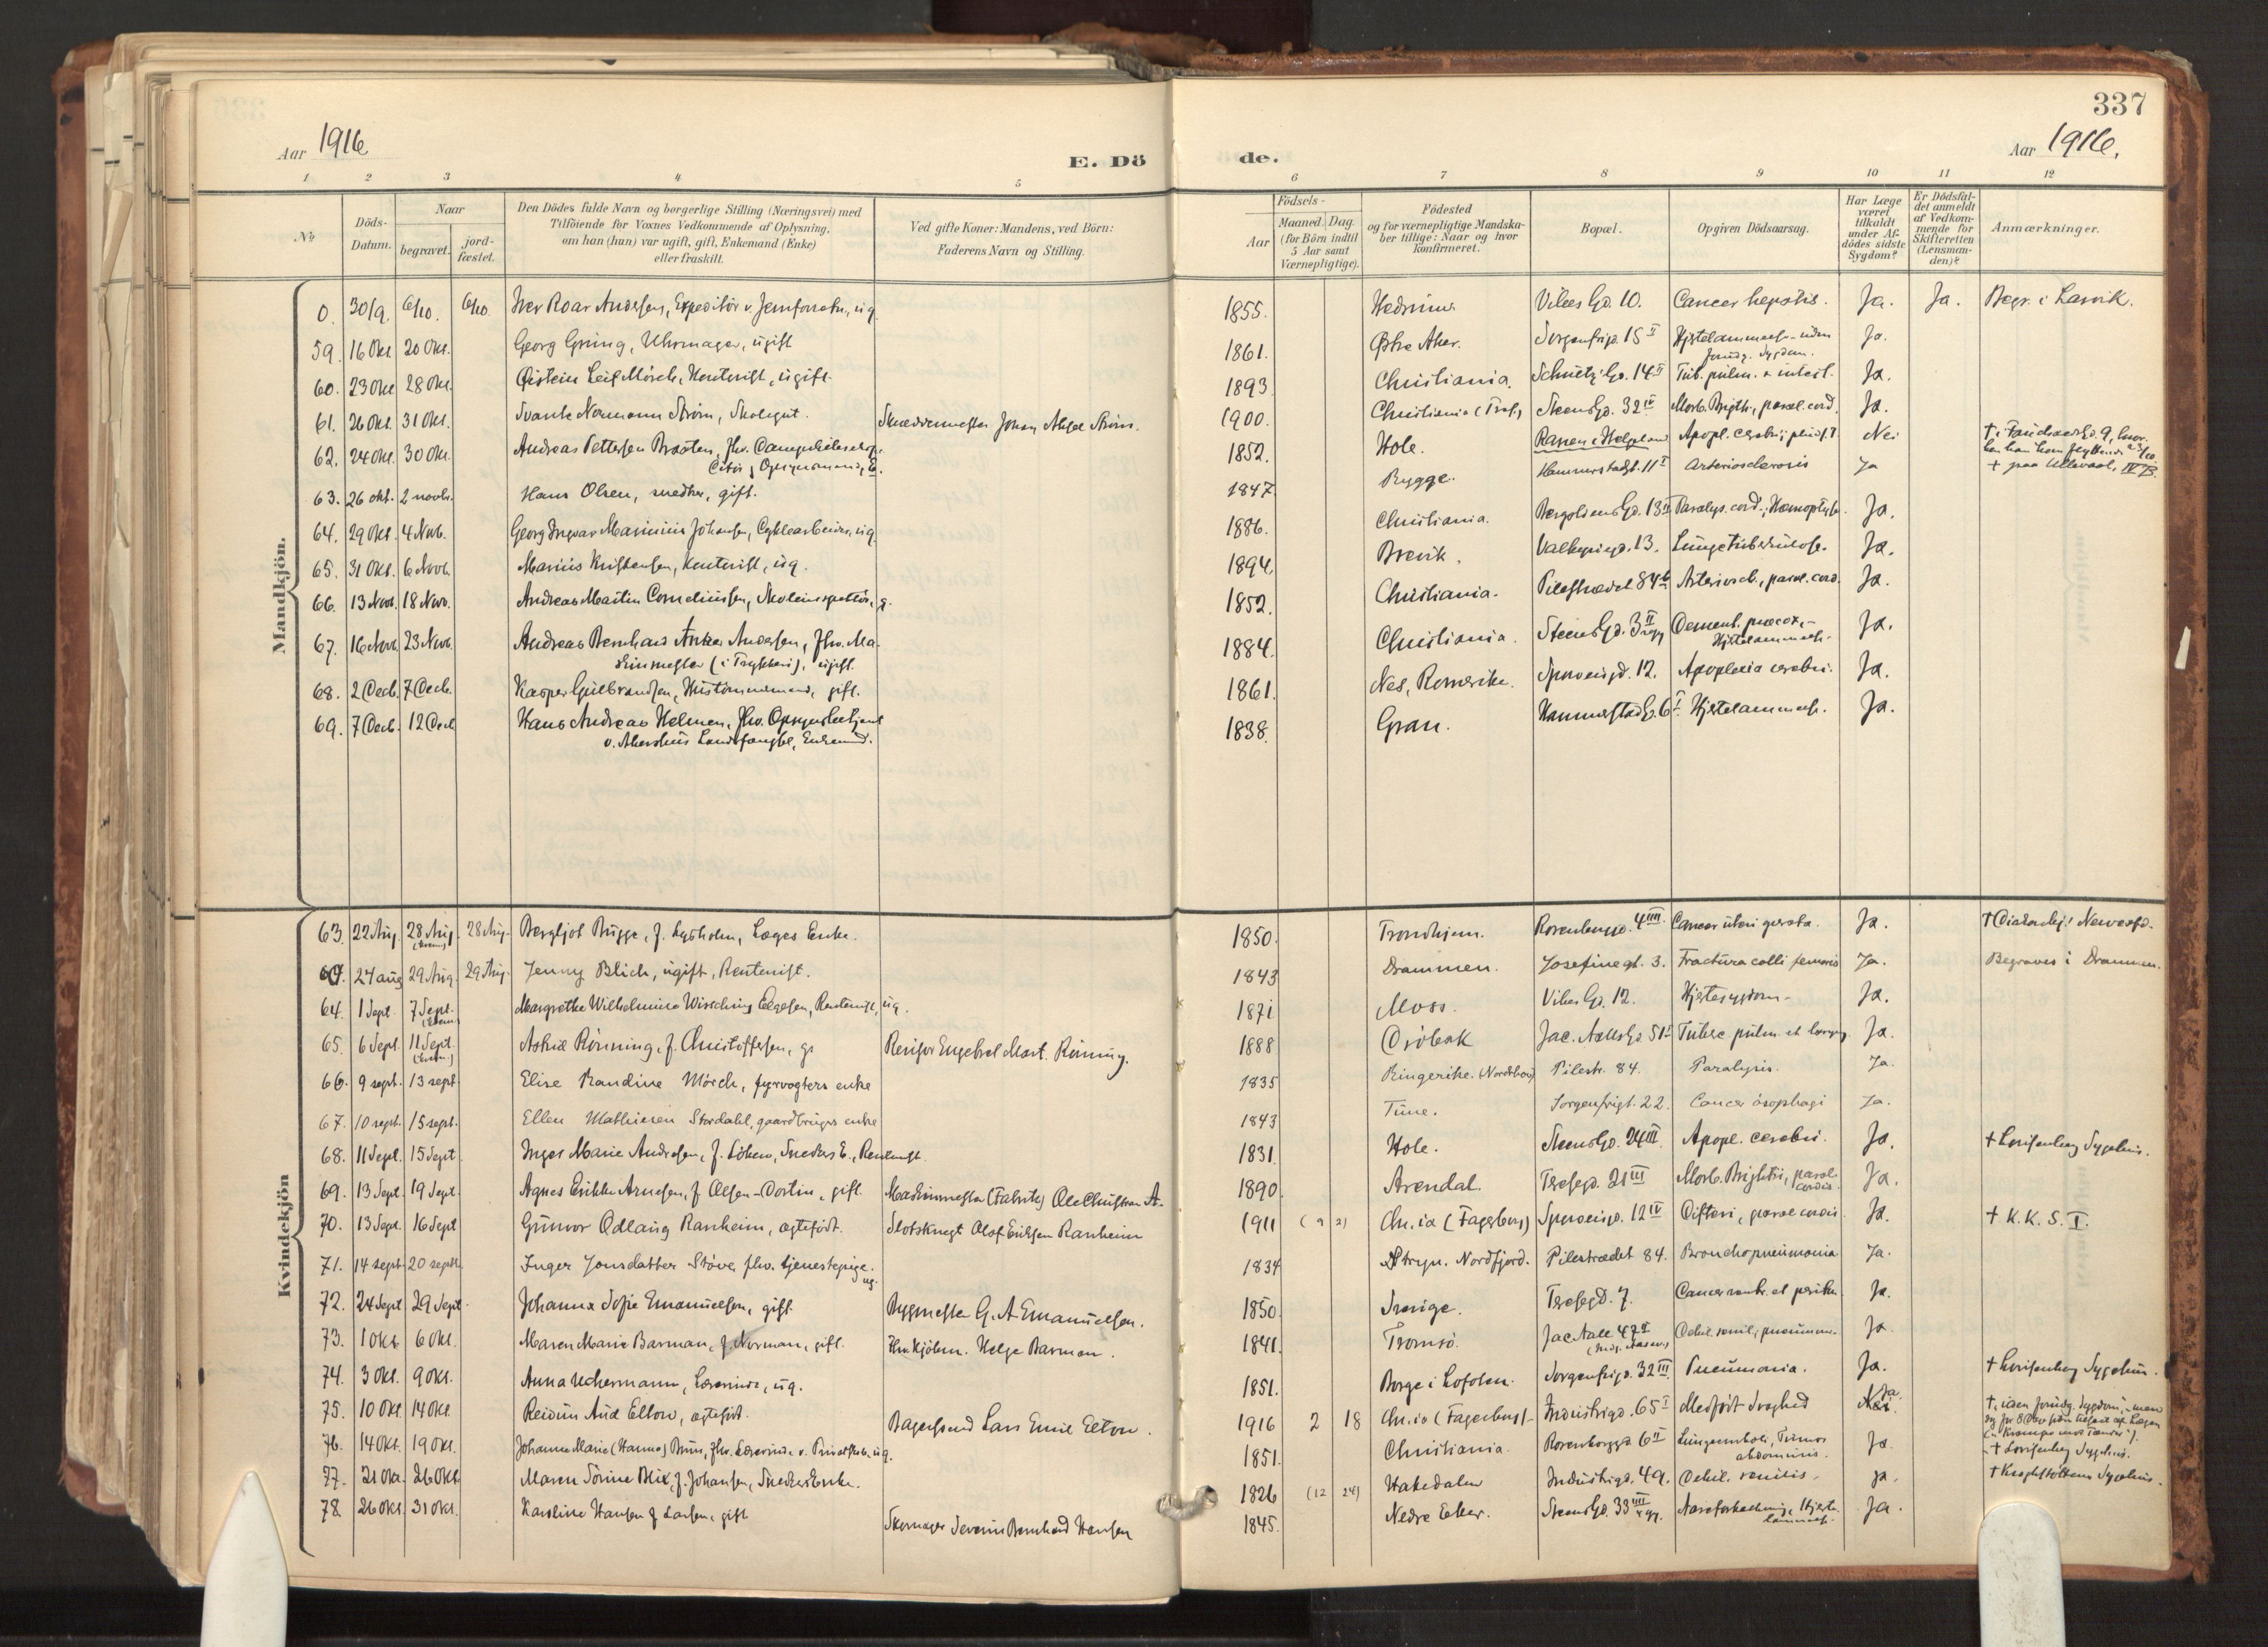 337
Aar 1916
E. Dö
de.
Aar 1916.
1 2 3 4 5 6 7 8 9 10 11 12
No
Döds-Datum.
Naar
begravet.
jord-fæstet.
Den Dödes fulde Navn og borgerlige Stilling (Næringsvei) med
Tilföiende for Voxnes Vedkommende af Oplysning,
om han (hun) var ugift, gift, Enkemand (Enke)
eller fraskilt.
Ved gifte Koner: Mandens, ved Börn:
Faderens Navn og Stilling.
Födsels-
Aar
Maaned. Dag.
(for Börn indtil
5 Aar samt
Værnepligtige).
Födested
og for værnepligtige Mandska-
ber tillige: Naar og hvor
konfirmeret.
Bopæl.
Opgiven Dödsaarsag.
Har Læge
været
tilkaldt
under Af-
dödes sidste
Sygdom?
Er Dödsfal-
det anmeldt
af Vedkom-
mende for
Skifteretten
(Lensman-
den)?
Anmærkninger.
Mandkjön.
0. 30/9. 6/10. 6/10. Iver Roar Andersen, Expeditör v. Jernforretn., ug. 1855. Hedrum Vibes Gd. 10. Cancer hepatis. Ja. Ja. Begr. i Larvik.
59. 16 Okt. 20 Okt. Georg Grüning, Uhrmager, ugift 1861. Östre Aker. Sorgenfrigd. 15 II Hjertelammelse uden
forudg. Sygdom. Ja.
60. 23 Okt 28 Okt. Öistein Leif Mörch, Kontorist, ugift. 1893 Christiania. Schultz' Gd. 14 II Tub. pulm. & intest. Ja.
61. 26 Okt. 31 Okt. Svante Normann Ström, Skolegut. Skræddermester Johan Ström. 1900. Christiania Steens Gd. 32 IV Morb. Brigthi, paral. cord. Ja.
62. 24 Okt. 30 Okt. Andreas Pettersen Braaten, fhv. 1852. Hole. Ranen i Helgeland Apopl. cerebri; Nei
63. 26 okt. 2 novbr. Hans Olsen, snedker, gift. 1847 Rygge. Hammerstadgt. 11 I Arteriosclerosis Ja + paa Ullevaal,
64. 29 Okt. 4 Nvb. Georg Ingvar Marinius Johansen, Cyklearbeider, ug. 1886. Christiania. Bergsliens Gd. 13 II Paralys. cord.; Hæmoptyse. Ja.
65. 31 Okt. 6 Novb. Marius Kristensen, Kontorist, ug. 1894 Brevik. Valkyrigd. 13. Lungetuberkulose. Ja.
66. 13 Novb. 18 Nov. Andreas Martin Corneliussen, Skoleinspektör, g. 1852. Christiania. Pilestrædet 84 b Arteriosch., paral. cord. Ja.
67. 16 Novb. 23 Novb. Andreas Bernhard Anker Andersen, fhv. Ma-
skinmester (i Trykkeri), ugift. 1884. Christiania. Steens Gd. 3 II Dement. præcox,-
Hjertelammelse. Ja.
68. 2 Decb. 7 Decb. Kasper Gulbrandsen, Hustömmermand, gift. 1861. Nes, Romerike. Sporveisgd. 12. Apoplexia cerebri. Ja.
69. 7 Decb. 12 Decb Hans Andreas Helmen, fhv. Opsynsbetjent
v. Akershus Landsfængsel, Enkemd. 1838. Gran. Hammerstad Gd. 6 I. Hjertelammelse. Ja.
Kvindekjön
63. 22 Aug. 28 Aug. 28 Aug. Bergljot Bugge, f. Lysholm, Læges Enke. 1850. Trondhjem. Rosenborggd. 4 IIII. Cancer uteri Ja.
0. 24 aug 29 Aug. 29 Aug. Jenny Blich, ugift, Rentenist. 1843 Drammen. Josefinegt. 3. Fractura colli femoris Ja. Begraves i Drammen.
64. 1 Sept. 7 Sept. Margrethe Wilhelmine Wisching Ellefsen, Rentenist, ug. 1871 Moss. Vibes Gd. 12. Hjertesygdom Ja.
65. 6 Sept. 11 Sept. Astrid Rönning, f. Christoffersen, g. Revisor Engebret Mart. Rönning. 1888 Dröbak Jac. Aalls Gd. 51 I Tuberc. pulm. et laryng. Ja.
66. 9 sept. 13 sept. Elise Randine Mörch, fyrvogters enke 1835 Ringerike. (Norderhov) Pilestr. 84. Paralysis. Ja.
67. 10 sept. 15 sept. Ellen Mathiesen Stordahl, gaardbrugers enke 1843 Tune. Sorgenfrigt. 22. Cancer ösophagi Ja.
68. 11 Sept. 15 Sept Inger Marie Andersen, f. Löken, Snedkers E., Rentenist. 1831. Hole. Steens Gd. 24 III. Apopl. cerebri. Ja. + Lovisenberg Sygehus.
69. 13 Sept. 19 Sept. Agnes Erikke Arnesen, f. Olsen-Dortin, gift. Maskinmester (Fabrik) Ole Christian A. 1890. Arendal. Teresegd. 21 III Morb. Brightii, paral.
cordis. Ja.
70. 13 Sept. 16 Sept Gunvor Odlaug Ranheim, ægtefödt. Slotsknegt Olaf Eriksen Ranheim 1911 (9 2) Chr.ia (Fagerborg) Sporveisgd. 12 IV Difteri, paral. cordis. Ja. + K. K. S. I.
71. 14 sept. 20 septb. Inger Jonsdatter Stöve, fhv. tjenestepige.
ug. 1834 Stryn. Nordfjord. Pilestrædet 84. Bronchopneumonia Ja.
72. 24 Sept 29 Sept. Johanna Sofie Emanuelson, gift. Bygmester G. A. Emanuelsen. 1850. Sverige. Teresegd. 7. Cancer ventr. et periton. Ja.
73. 1 Okt. 6 Okt. Maren Marie Barman, f. Norman, gift. Fhv. Kjöbm. Helge Barman. 1841. Tromsö. Jac Aall 47 I Debil. senil., pneumoni. Ja.
74. 3 Okt. 9 Okt. Anna Uchermann, Lærerinde, ug. 1851. Borge i Lofoten. Sorgenfrigd. 32 III Pneumonia. Ja. + Lovisenberg Sygehus.
75. 10 Okt. 14 Okt. Reidun Aud Elton, ægtefödt. Bagersvend Lars Emil Elton. 1916 2 18 Chr.ia (Fagerborg) Industrigd. 65 I Medfödt svaghed Ja.
76. 14 Okt. 19 Okt. Johanne Marie (Hanna) Bruun, fhv. Lærerinde v. Privatskole, ug. 1851. Christiania. Rosenborggd. 6 II Lungeemboli, Tumor
abdominis. Ja. + Lovisenberg Sygehus.
77. 21 Okt. 26 Okt. Maren Sörine Blix, f. Johansen, Snedkers Enke. 1826 (12 24) Hakedalen Industrigd. 49. Debil. senilis. Ja. + Krohgstöttens Sygehus.
78. 26 Okt. 31 Okt. Karoline Hansen f Larsen, gift Skomager Severin Bernhard Hansen 1845. Nedre Eker. Steens Gd. 33 IIII Aareforkalkning, Hjerte-
lammelse. Ja.